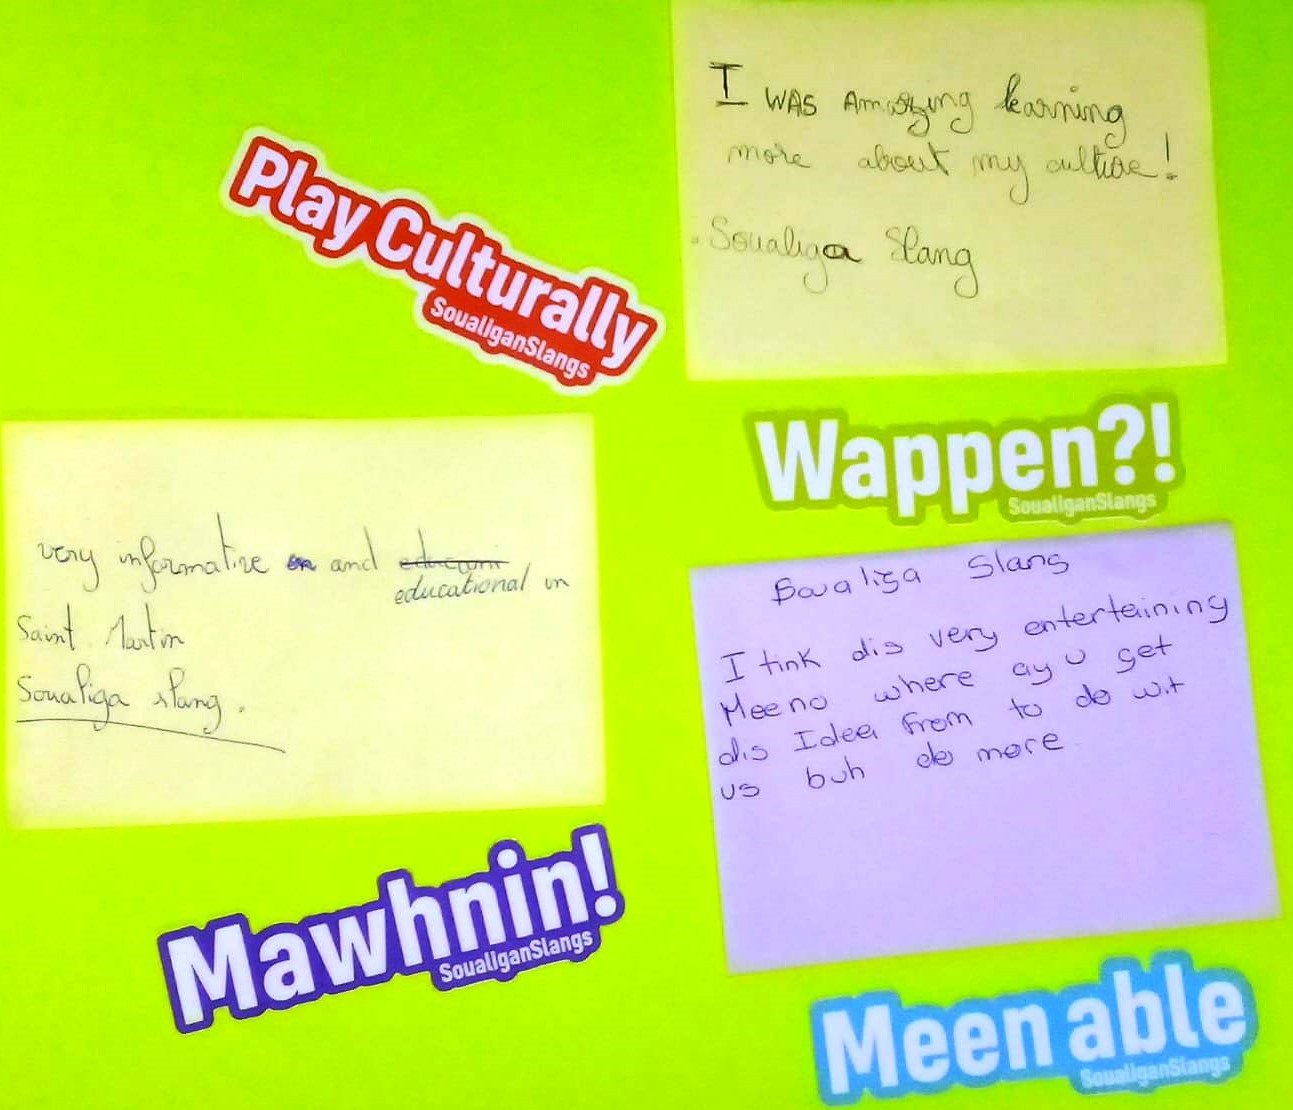 I WAS Amazing learning
more about my culture!
Soualiga Slang
Play Culturally
SoualiganSlangs
Wappen?!
SoualiganSlangs
very informative and
educational in
Saint Martin
Soualiga slang.
Soualiga Slang
I tink dis very entertaining
Meeno where ay u get
dis Idea from to do wit
us buh do more
Mawhnin!
SoualiganSlangs
Meen able
SoualiganSlangs